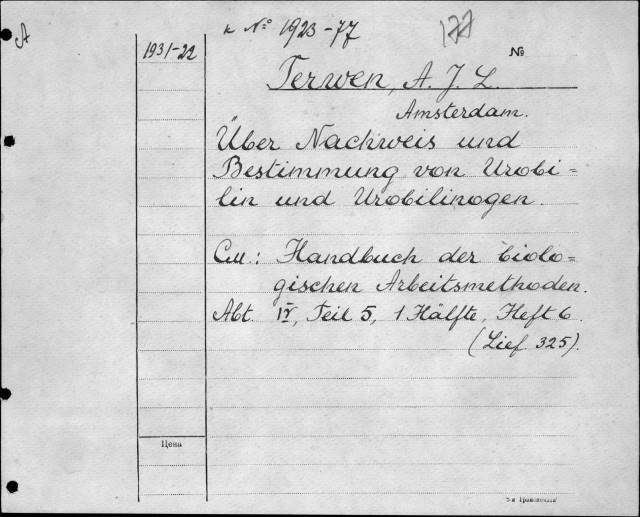 А
к № 1923-77
177
1931-22
№
Terwen, A. J. L.
Amsterdam.
Über Nachweis und
Bestimmung von Urobi=
lin und Urobilinogen.
См.: Handbuch der biolo-
gischen Arbeitsmethoden.
Abt. IV, Teil 5, 1 Hälfte, Heft 6.
(Lief. 325).
Цена